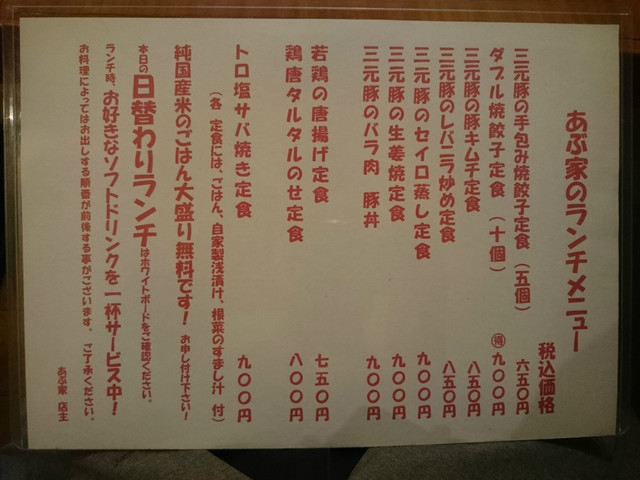 あぶ家のランチメニュー
税込価格
三元豚の手包み焼餃子定食（五個） 六五〇円
ダブル焼餃子定食（十個） 得 九〇〇円
三元豚の豚キムチ定食 八五〇円
三元豚のレバニラ炒め定食 八五〇円
三元豚のセイロ蒸し定食 九〇〇円
三元豚の生姜焼定食 九〇〇円
三元豚のバラ肉 豚丼 九〇〇円
若鶏の唐揚げ定食 七五〇円
鶏唐タルタルのせ定食 八〇〇円
トロ塩サバ焼き定食 九〇〇円
（各 定食には、ごはん、自家製浅漬け、根菜のすまし汁 付）
純国産米のごはん大盛り無料です！ お申し付け下さい！
本日の日替わりランチはホワイトボードをご確認ください。
ランチ時、お好きなソフトドリンクを一杯サービス中！
お料理によってはお出しする順番が前後する事がございます。ご了承ください。
あぶ家 店主